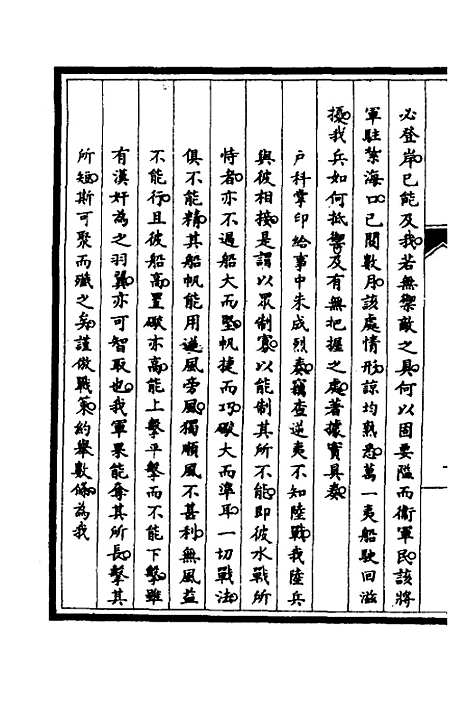 必登岸已能及我若無禦敵之具何以固要隘而衞軍民該將
軍駐紮海口已閱數月該處情形諒均熟悉萬一夷船駛回滋
擾我兵如何抵禦及有無把握之處著據實具奏
戶科掌印給事中朱成烈奏竊查逆夷不知陸戰我陸兵
與彼相接是謂以眾制寡以能制其所不能即彼水戰所
恃者亦不過船大而堅帆捷而巧礮大而準耳一切戰法
俱不能精其船帆能用逆風旁風獨順風不甚利無風益
不能行且彼船高置礮亦高能上擊平擊而不能下擊雖
有漢奸為之羽翼亦可智取也我軍果能奪其所長擊其
所短斯可聚而殲之矣謹倣戰策約舉數條為我